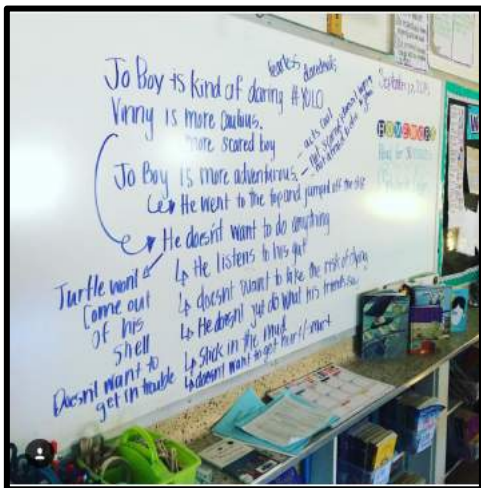 Jo Boy is kind of daring #YOLO
fearless daredevil
Vinny is more cautious.
more scared boy
Jo Boy is more adventurous.
- acts cool
- not scared
- not afraid to die
He went to the top and jumped off the
He doesn't want to do anything
He listens to his gut
doesnt want to take the risk of dying
He doesn't just do what his friends
Stick in the mud
doesnt want to get hurt/
Turtle wont
Come out
of his
shell
Doesnt want to
get in trouble
HOMEWORK